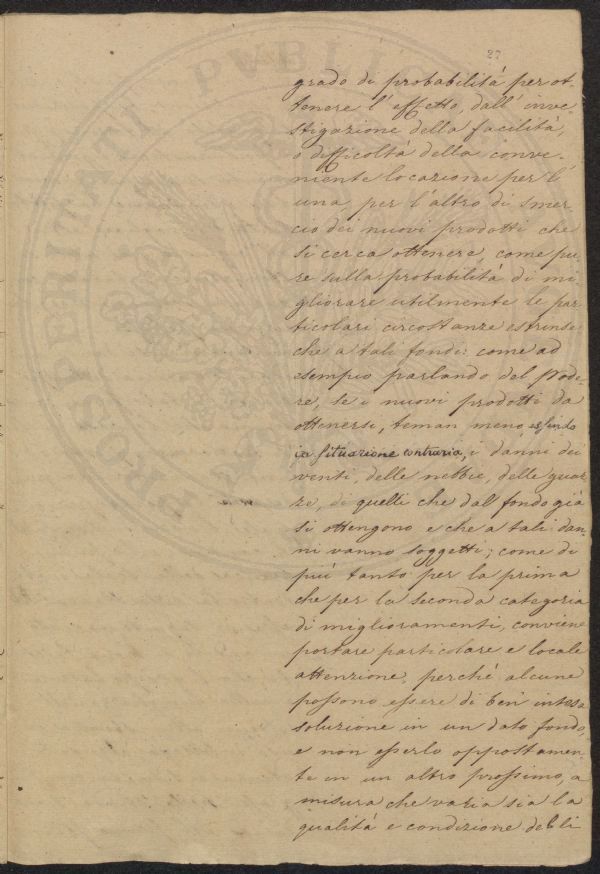 27
grado di probabilità per ot-
tenere l'effetto, dall'inve-
stigazione della facilità,
o difficoltà della conve-
niente locazione per l'
una, per l'altro di smer-
cio dei nuovi prodotti che
si cerca ottenere, come pu-
re sulla probabilità di mi-
gliorare utilmente le par-
ticolari circostanze estrinse-
che a tali fondi: come ad
esempio parlando del Pode-
re, se i nuovi prodotti da
ottenersi, teman meno, essendo
in situazione contraria, i danni dei
venti, delle nebbie, delle guaz-
ze, di quelli che dal fondo già
si ottengono e che a tali dan-
ni vanno soggetti; come di
più tanto per la prima
che per la seconda categoria
di miglioramenti, conviene
portare particolare e locale
attenzione, perchè alcune
possono essere di ben intesa
soluzione in un dato fondo,
e non esserlo oppostamen-
te in un altro prossimo, a
misura che varia sia la
qualità e condizione delli
PROSPERITATI PVBLICAE